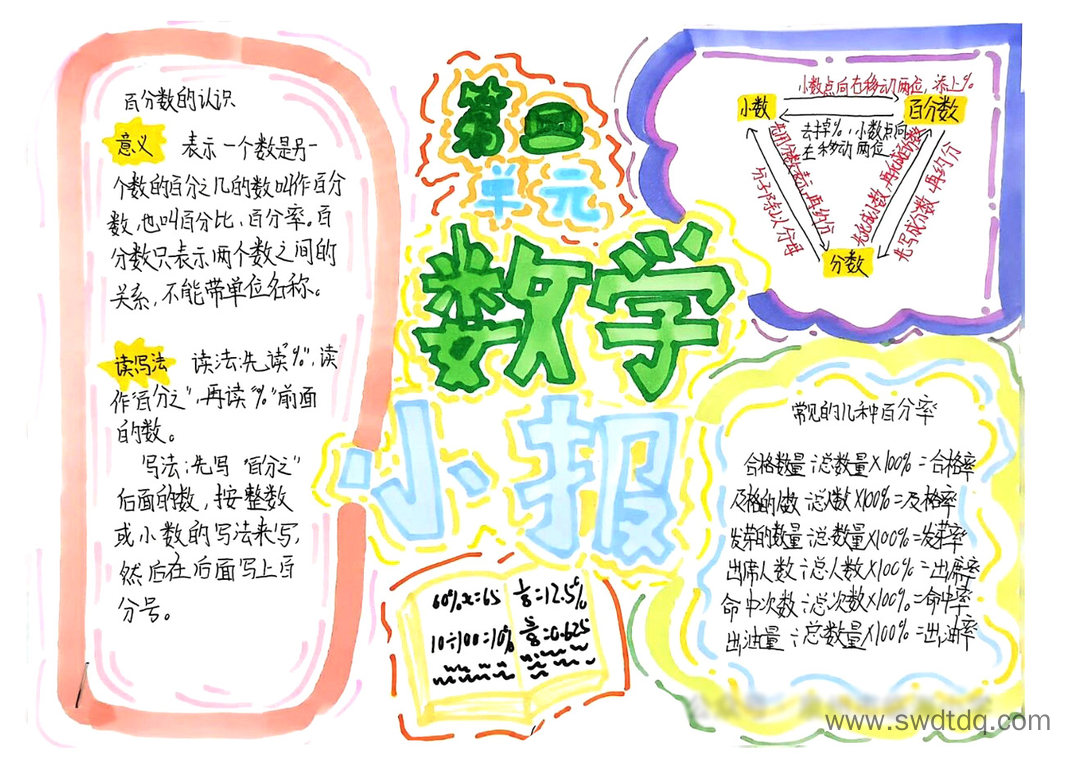 百分数的认识
意义 表示一个数是另一
个数的百分之几的数叫作百分
数,也叫百分比、百分率。百
分数只表示两个数之间的
关系,不能带单位名称。
读写法 读法:先读“%”,读
作“百分之”,再读“%”前面
的数。
写法:先写“百分之”
后面的数,按整数
或小数的写法来写,
然后在后面写上百
分号。
第四
单元
数学
小报
60%x=65
10÷100=10%
1/8=12.5%
5/8=0.625
小数点向右移动两位,添上%
小数
百分数
去掉%,小数点向
左移动两位
先用分数表示,再约分
分子除以分母
先化成小数,再化成百分数
先写成分数,再约分
分数
常见的几种百分率
合格数量÷总数量×100%=合格率
及格的人数÷总人数×100%=及格率
发芽的数量÷总数量×100%=发芽率
出席人数÷总人数×100%=出席率
命中次数÷总次数×100%=命中率
出油量÷总数量×100%=出油率
www.swdtdq.com